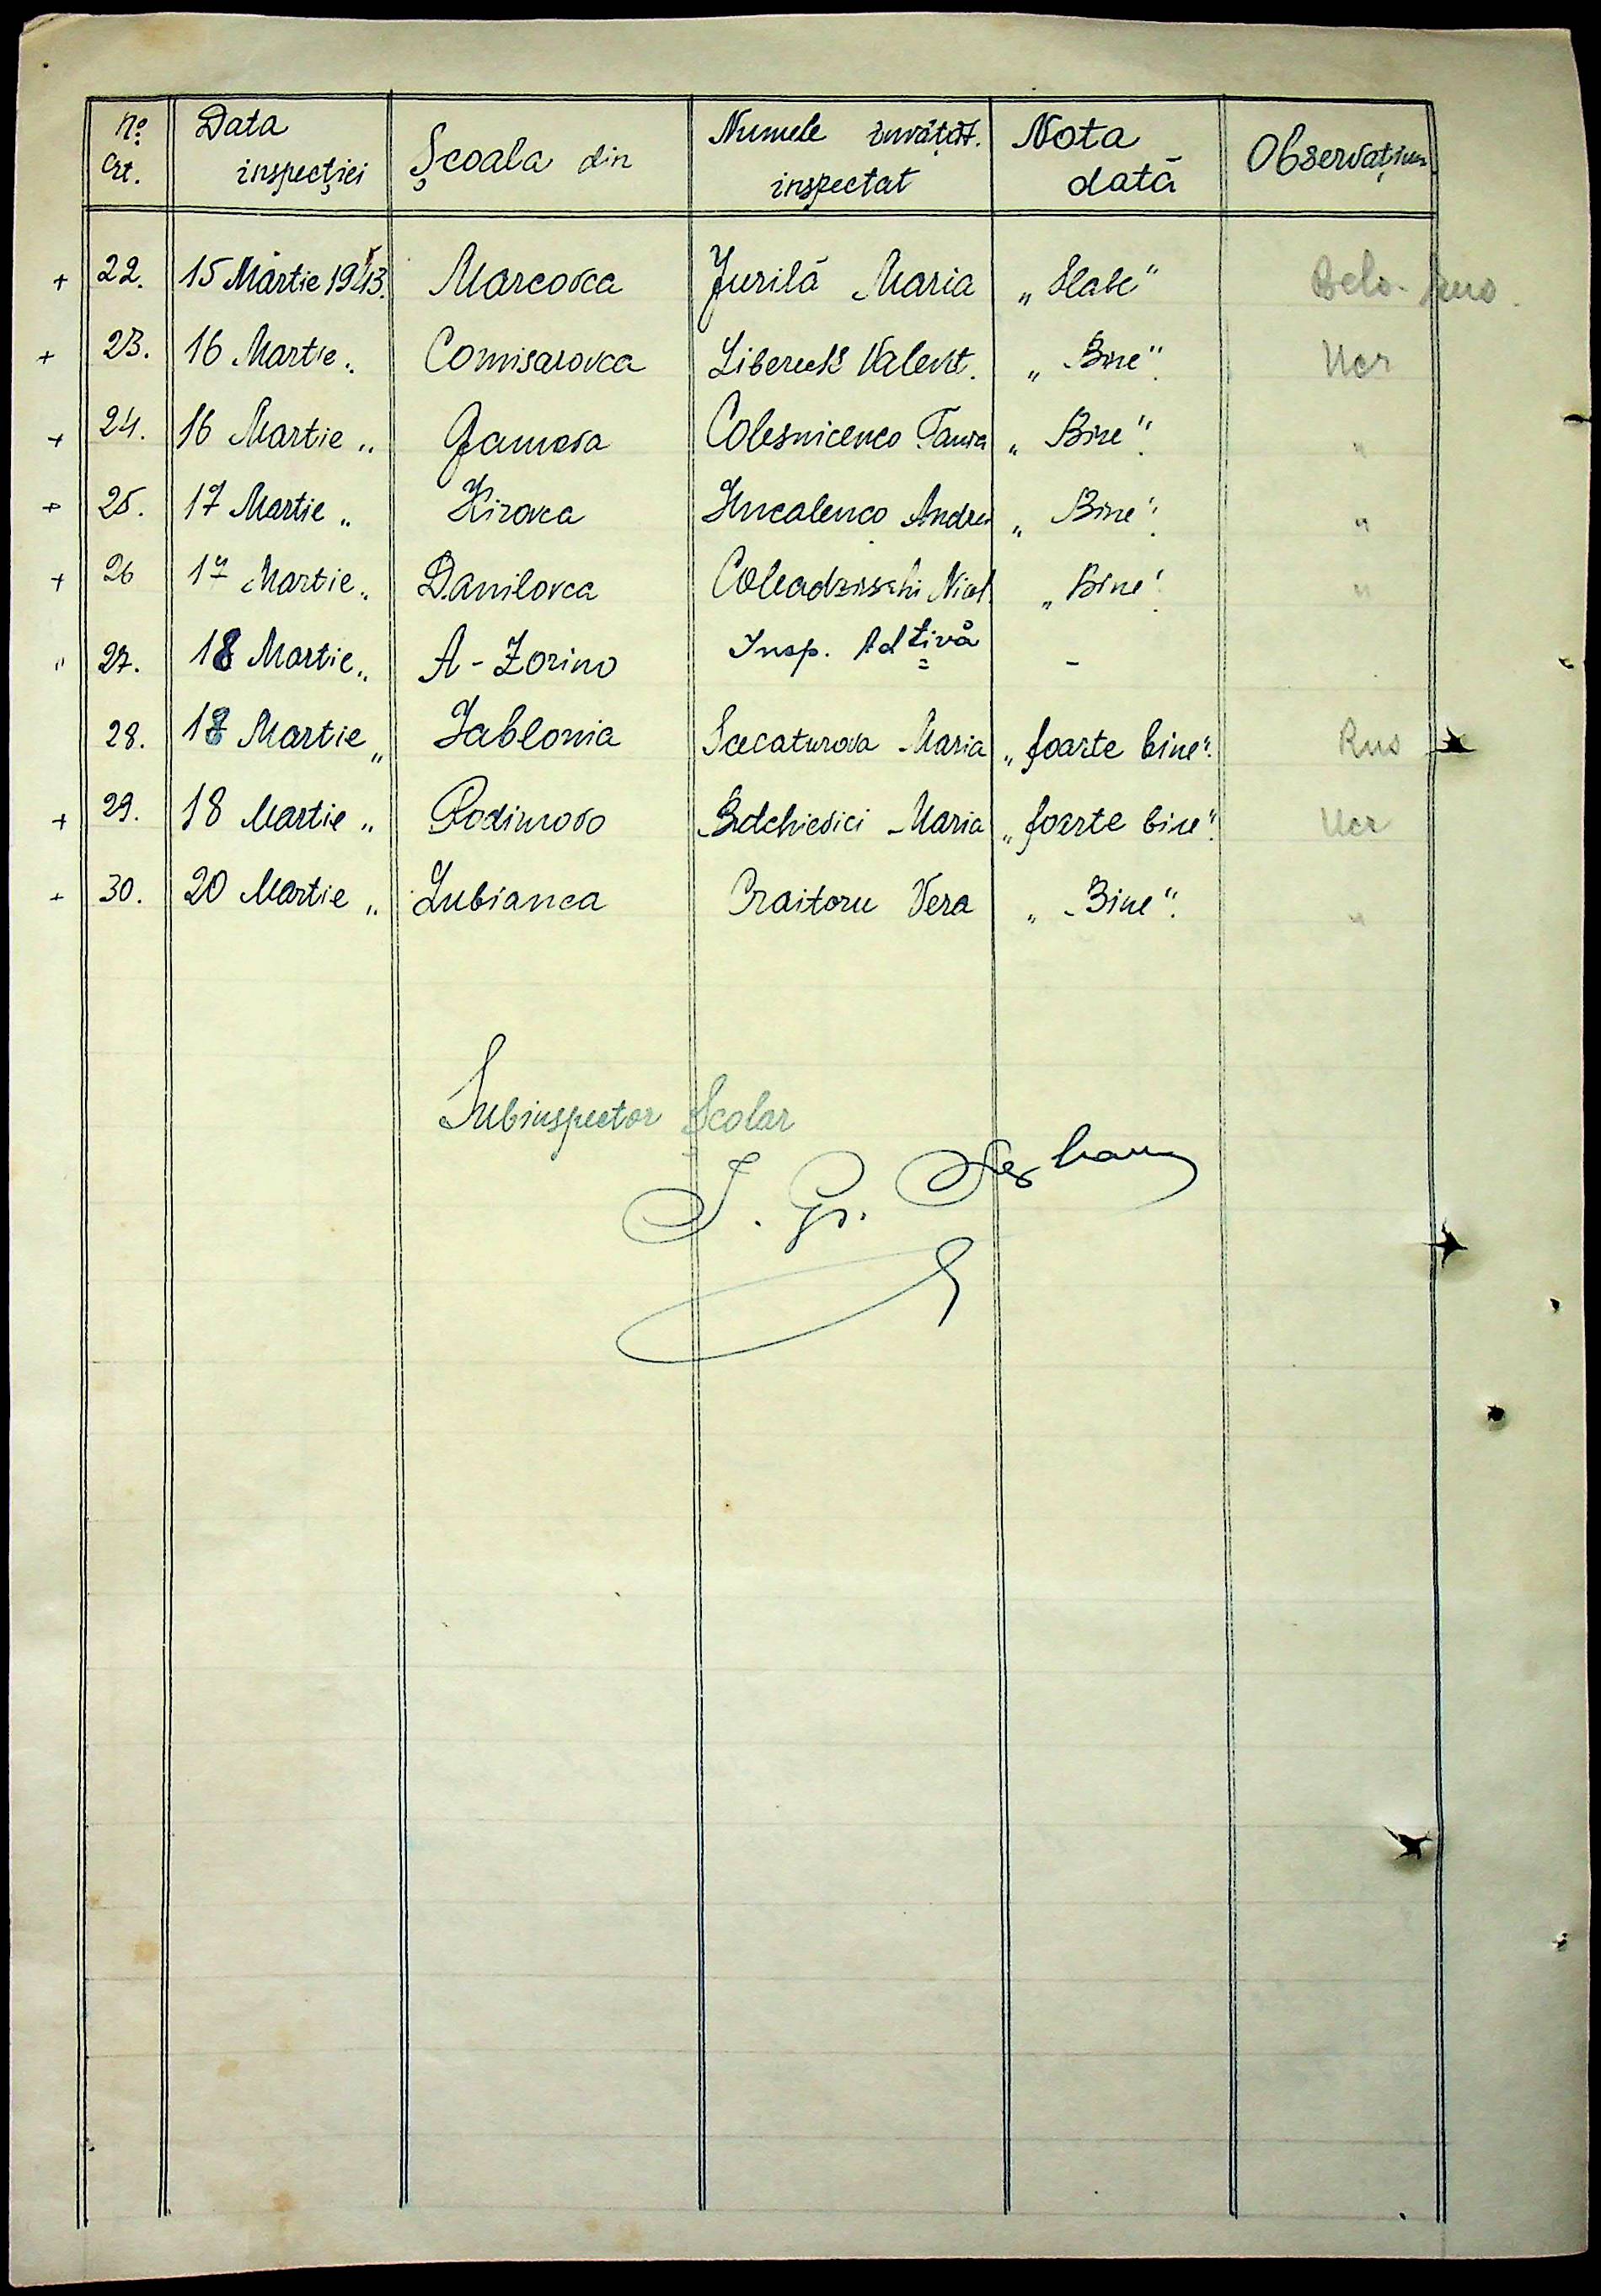 No. Crt. Data inspecţiei Şcoala din Numele învăţăt. inspectat Nota dată Observaţiun
+ 22. 15 Martie 1943. Marcovca Jurilă Maria „Slabe" Belo-Rus.
+ 23. 16 Martie „ Comisarovca Valent. „Bine". Ucr
+ 24. 16 Martie „ Colesnicenco „Bine". "
+ 25. 17 Martie „ Kirovca Andrei „Bine". "
+ 26 17 Martie „ Danilovca Nicol. „Bine". "
" 27. 18 Martie „ A-Zorino Insp. Adtivă -
28. 18 Martie „ Jablonia Maria „foarte bine". Rus
+ 29. 18 Martie „ Rodimovo Maria „foarte bine". Ucr
+ 30. 20 Martie „ Lubianca Craitoru Vera „Bine". "
Subinspector Şcolar
I. Gr.